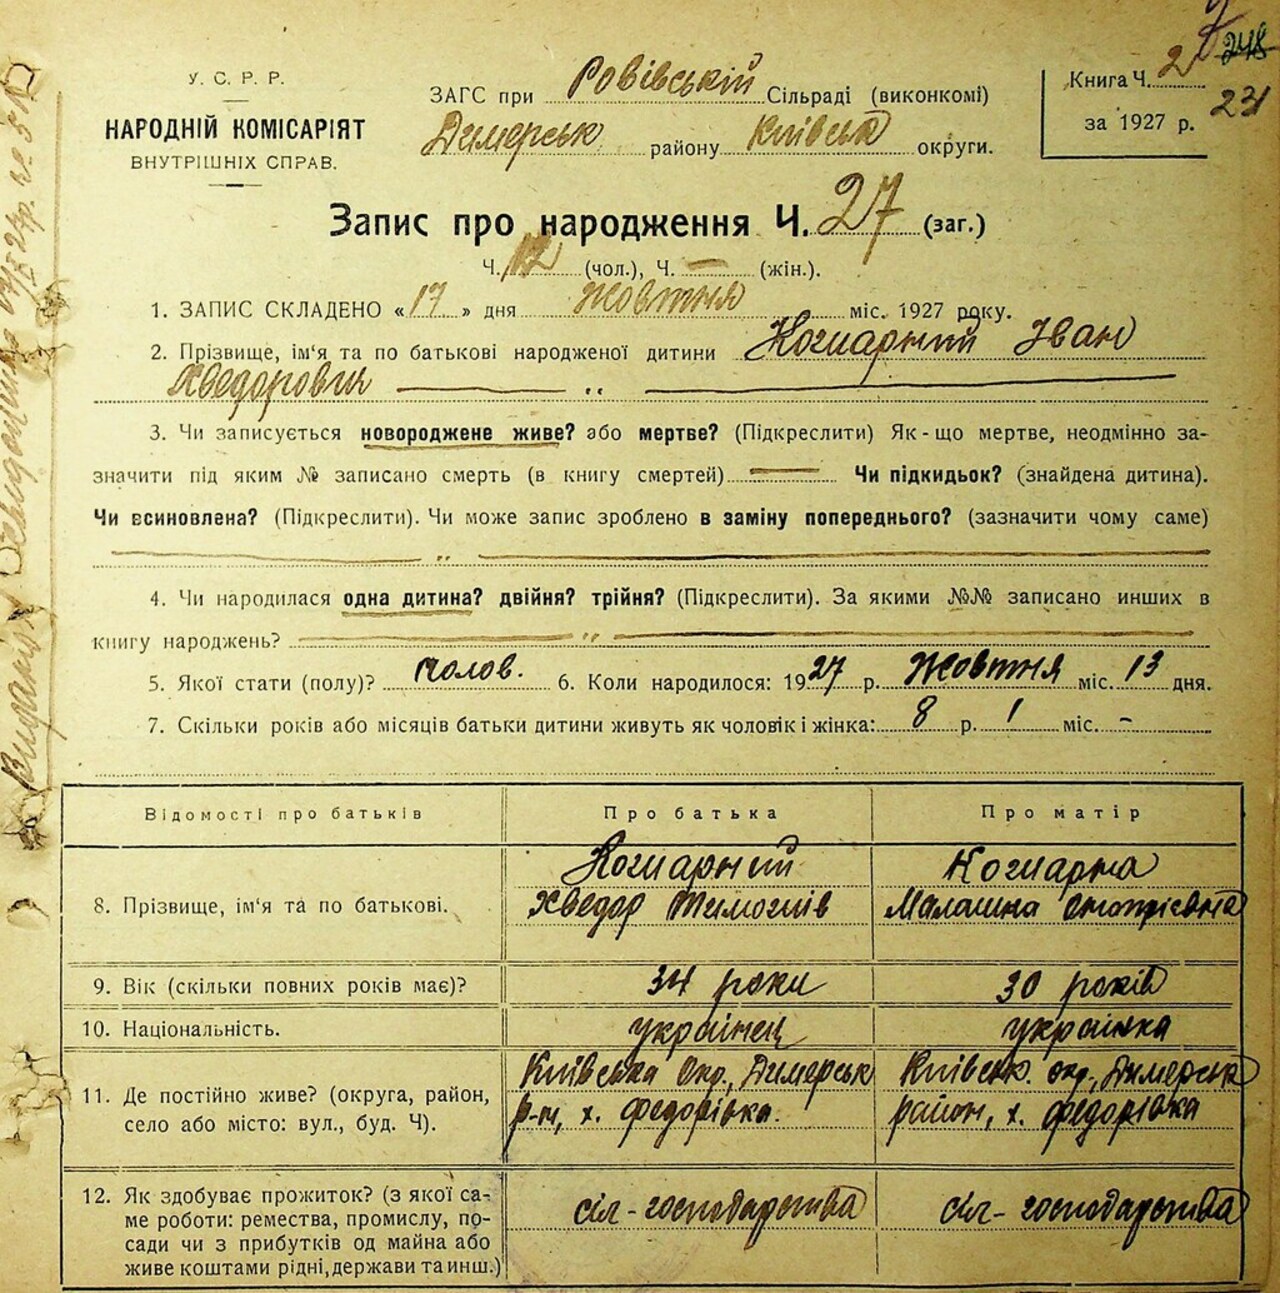 248
У. С. Р. Р.
НАРОДНІЙ КОМІСАРІЯТ
ВНУТРІШНІХ СПРАВ.
ЗАГС при Ровівській Сільраді (виконкомі)
Димерськ району Київськ округи.
Книга Ч. 2
231
за 1927 р.
Запис про народження Ч. 27 (заг.)
Ч. 12 (чол.), Ч. — (жін.).
1. ЗАПИС СКЛАДЕНО «17» дня Жовтня міс. 1927 року.
2. Прізвище, ім'я та по батькові народженої дитини Кошарний Іван
Хведорович — „ —
3. Чи записується новороджене живе? або мертве? (Підкреслити) Як-що мертве, неодмінно за-
значити під яким № записано смерть (в книгу смертей) — Чи підкидьок? (знайдена дитина).
Чи всиновлена? (Підкреслити). Чи може запис зроблено в заміну попереднього? (зазначити чому саме)
— „ —
4. Чи народилася одна дитина? двійня? трійня? (Підкреслити). За якими №№ записано инших в
книгу народжень? — „ —
5. Якої стати (полу)? чолов. 6. Коли народилося: 1927 р. Жовтня міс. 13 дня.
7. Скільки років або місяців батьки дитини живуть як чоловік і жінка: 8 р. 1 міс. –
Відомості про батьків Про батька Про матір
8. Прізвище, ім'я та по батькові.
Кошарний
Хведор Тимошів
Кошарна
Малашка
9. Вік (скільки повних років має)? 34 роки 30 років
10. Національність. українец українка
11. Де постійно живе? (округа, район,
село або місто: вул., буд. Ч).
Київська Окр., Димерськ
р-н, х. Федорівка.
Київськ. окр., Димерськ
район, х. Федорівка
12. Як здобуває прожиток? (з якої са-
ме роботи: ремества, промислу, по-
сади чи з прибутків од майна або
живе коштами рідні, держави та инш.)
сіл-господарства
сіл-господарства